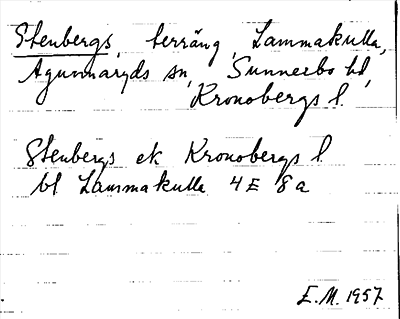 Stenbergs, terräng, Lammakulla,
Agunnaryds sn, Sunnerbo hd,
Kronobergs l.
Stenbergs ek Kronobergs l.
bl Lammakulla 4E 8a
E.M. 1957